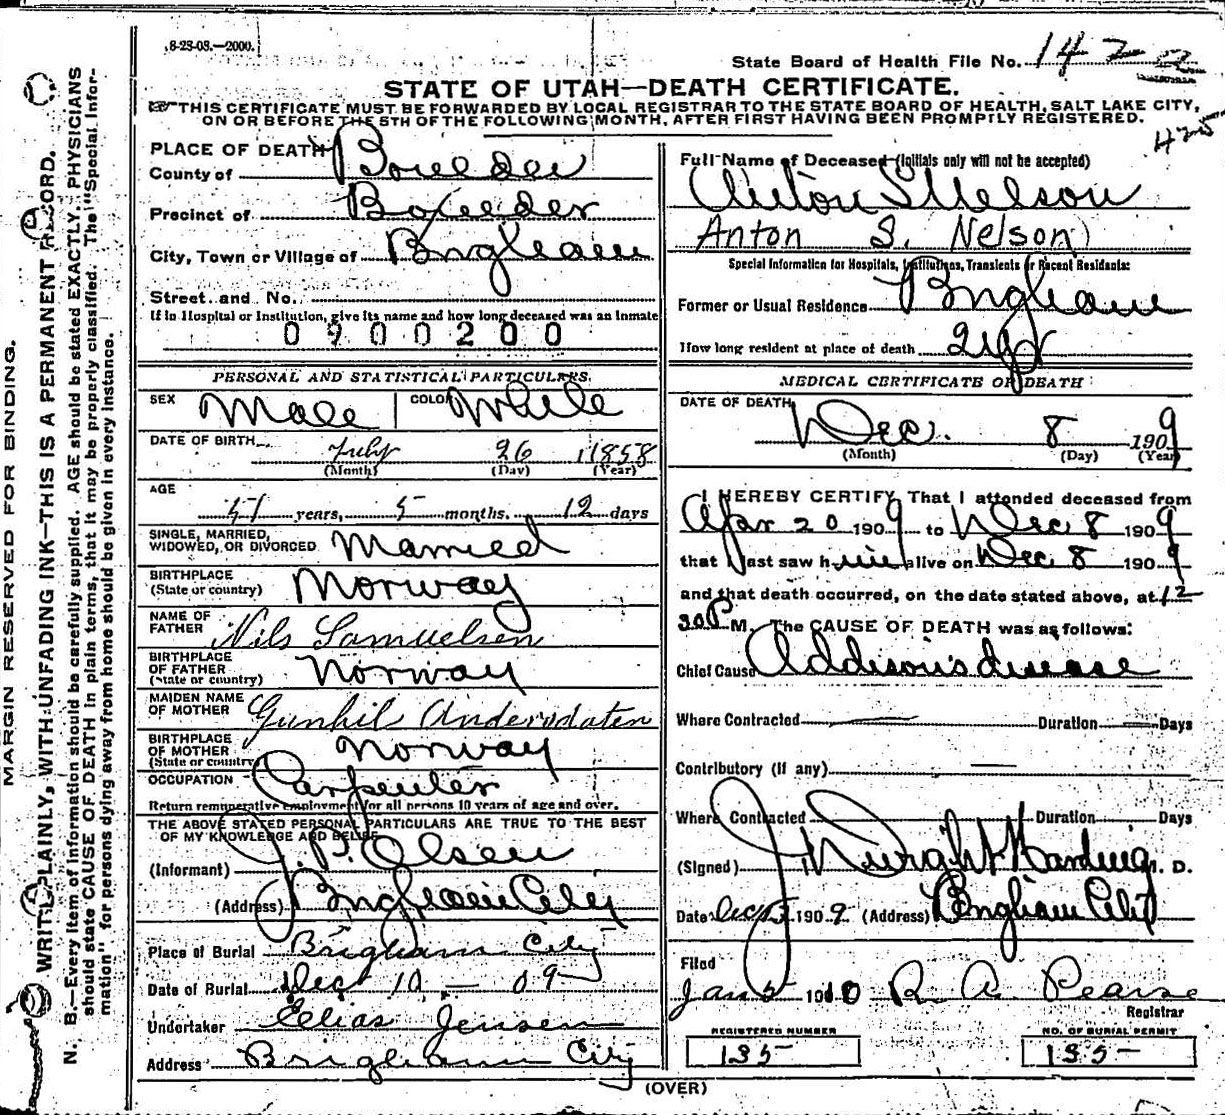 8-23-08.—2000.
State Board of Health File No. 142
STATE OF UTAH—DEATH CERTIFICATE.
THIS CERTIFICATE MUST BE FORWARDED BY LOCAL REGISTRAR TO THE STATE BOARD OF HEALTH, SALT LAKE CITY,
ON OR BEFORE THE 5TH OF THE FOLLOWING MONTH, AFTER FIRST HAVING BEEN PROMPTLY REGISTERED.
425
MARGIN RESERVED FOR BINDING.
WRITE PLAINLY, WITH UNFADING INK—THIS IS A PERMANENT RECORD.
N. B.—Every item of information should be carefully supplied. AGE should be stated EXACTLY. PHYSICIANS
should state CAUSE OF DEATH in plain terms, that it may be properly classified. The "Special Infor-
mation" for persons dying away from home should be given in every instance.
PLACE OF DEATH
County of Boxelder
Precinct of Boxelder
City, Town or Village of Brigham
Street and No.
If in Hospital or Institution, give its name and how long deceased was an inmate
0900200
PERSONAL AND STATISTICAL PARTICULARS.
SEX Male COLOR White
DATE OF BIRTH July 26 1858
(Month) (Day) (Year)
AGE
51 years, 5 months, 12 days
SINGLE, MARRIED,
WIDOWED, OR DIVORCED Married
BIRTHPLACE
(State or country) Norway
NAME OF
FATHER Nils Samuelsen
BIRTHPLACE
OF FATHER
(State or country) Norway
MAIDEN NAME
OF MOTHER Gunhil Andersdaten
BIRTHPLACE
OF MOTHER
(State or country) Norway
OCCUPATION Carpenter
Return remunerative employment for all persons 10 years of age and over.
THE ABOVE STATED PERSONAL PARTICULARS ARE TRUE TO THE BEST
OF MY KNOWLEDGE AND BELIEF
(Informant) J. P. Olsen
(Address) Brigham City
Place of Burial Brigham City
Date of Burial Dec 10 — 09
Undertaker Elias Jensen
Address Brigham City
Full Name of Deceased (Initials only will not be accepted)
Anton S Nelson
Anton S. Nelson
Special Information for Hospitals, Institutions, Transients or Recent Residents:
Former or Usual Residence Brigham
How long resident at place of death
MEDICAL CERTIFICATE OF DEATH
DATE OF DEATH
Dec. 8 1909
(Month) (Day) (Year)
I HEREBY CERTIFY, That I attended deceased from
Apr 20 1909 to Dec. 8 1909
that I last saw him alive on Dec. 8 1909
and that death occurred, on the date stated above, at 12
30 P M. The CAUSE OF DEATH was as follows:
Chief Cause Addison's disease
Where Contracted — Duration — Days
Contributory (if any) —
Where Contracted Duration Days
(Signed) J. Dwight Harding M. D.
Date Dec 1909. (Address) Brigham City
Filed
Jan 5 1910 R. A. Pearse
Registrar
REGISTERED NUMBER NO. OF BURIAL PERMIT
135 135
(OVER)